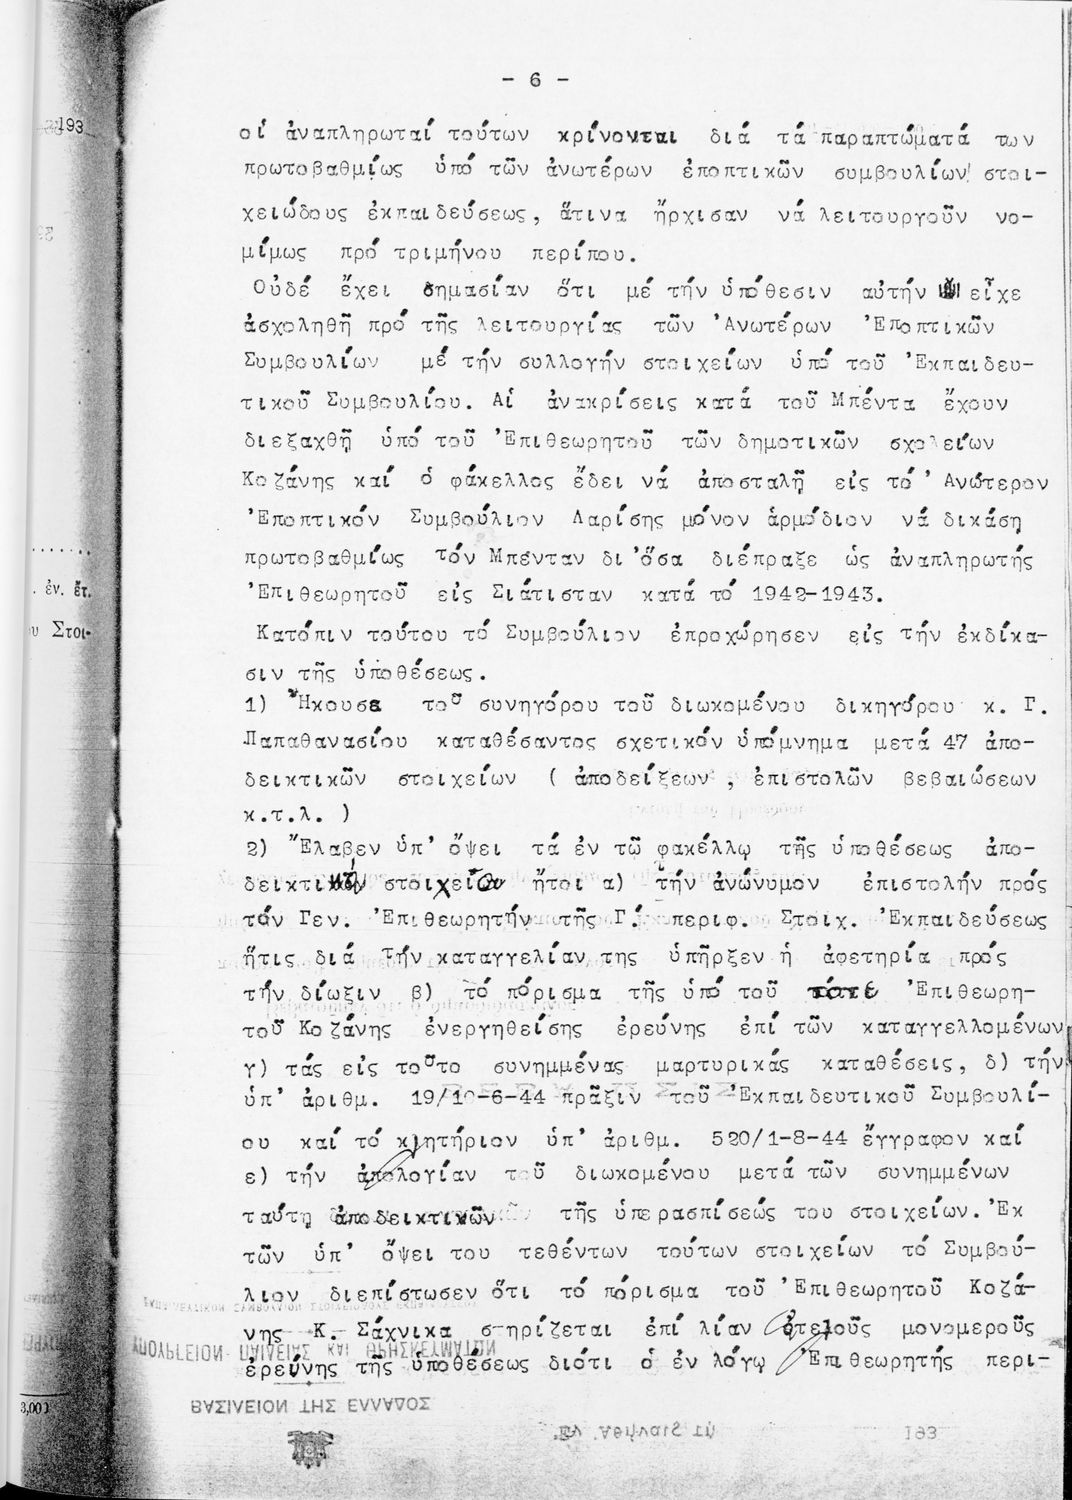 - 6 -
οἱ ἀναπληρωταί τούτων κρίνονται διά τά παραπτώματά των
πρωτοβαθμίως ὑπό τῶν ἀνωτέρων ἐποπτικῶν συμβουλίων στοι-
χειώδους ἐκπαιδεύσεως, ἅτινα ἤρχισαν νά λειτουργοῦν νο-
μίμως πρό τριμήνου περίπου.
Οὐδέ ἔχει σημασίαν ὅτι μέ τήν ὑπόθεσιν αὐτήν εἶχε
ἀσχοληθῆ πρό τῆς λειτουργίας τῶν Ἀνωτέρων Ἐποπτικῶν
Συμβουλίων μέ τήν συλλογήν στοιχείων ὑπό τοῦ Ἐκπαιδευ-
τικοῦ Συμβουλίου. Αἱ ἀνακρίσεις κατά τοῦ Μπέντα ἔχουν
διεξαχθῆ ὑπό τοῦ Ἐπιθεωρητοῦ τῶν δημοτικῶν σχολείων
Κοζάνης καί ὁ φάκελλος ἔδει νά ἀποσταλῆ εἰς τό Ἀνώτερον
Ἐποπτικόν Συμβούλιον Λαρίσης μόνον ἁρμόδιον νά δικάση
πρωτοβαθμίως τόν Μπένταν δι' ὅσα διέπραξε ὡς ἀναπληρωτής
Ἐπιθεωρητοῦ εἰς Σιάτισταν κατά τό 1942-1943.
Κατόπιν τούτου τό Συμβούλιον ἐπροχώρησεν εἰς τήν ἐκδίκα-
σιν τῆς ὑποθέσεως.
1) Ἤκουσε τοῦ συνηγόρου τοῦ διωκομένου δικηγόρου κ. Γ.
Παπαθανασίου καταθέσαντος σχετικόν ὑπόμνημα μετά 47 ἀπο-
δεικτικῶν στοιχείων ( ἀποδείξεων , ἐπιστολῶν βεβαιώσεων
κ.τ.λ. )
2) Ἔλαβεν ὑπ' ὄψει τά ἐν τῷ φακέλλῳ τῆς ὑποθέσεως ἀπο-
δεικτικῶν στοιχείων ἤτοι α) τήν ἀνώνυμον ἐπιστολήν πρός
τόν Γεν. Ἐπιθεωρητήν τῆς Γ΄ περιφ. Στοιχ. Ἐκπαιδεύσεως
ἥτις διά τήν καταγγελίαν της ὑπῆρξεν ἡ ἀφετηρία πρός
τήν δίωξιν β) τό πόρισμα τῆς ὑπό τοῦ τότε Ἐπιθεωρη-
τοῦ Κοζάνης ἐνεργηθείσης ἐρεύνης ἐπί τῶν καταγγελλομένων
γ) τάς εἰς τοῦτο συνημμένας μαρτυρικάς καταθέσεις, δ) τήν
ὑπ' ἀριθμ. 19/10-6-44 πρᾶξιν τοῦ Ἐκπαιδευτικοῦ Συμβουλί-
ου καί τό κλητήριον ὑπ' ἀριθμ. 520/1-8-44 ἔγγραφον καί
ε) τήν ἀπολογίαν τοῦ διωκομένου μετά τῶν συνημμένων
ταύτη ἀποδεικτικῶν τῆς ὑπερασπίσεώς του στοιχείων. Ἐκ
τῶν ὑπ' ὄψει του τεθέντων τούτων στοιχείων τό Συμβού-
λιον διεπίστωσεν ὅτι τό πόρισμα τοῦ Ἐπιθεωρητοῦ Κοζά-
νης Κ. Σάχνικα στηρίζεται ἐπί λίαν ἀτελοῦς μονομεροῦς
ἐρεύνης τῆς ὑποθέσεως διότι ὁ ἐν λόγῳ Ἐπιθεωρητής περι-
193
. ἐν. ἔτ.
Στοι-
ΥΠΟΥΡΓΕΙΟΝ ΠΑΙΔΕΙΑΣ ΚΑΙ ΘΡΗΣΚΕΥΜΑΤΩΝ
ΒΑΣΙΛΕΙΟΝ ΤΗΣ ΕΛΛΑΔΟΣ
Ἐν Ἀθήναις τῇ 193